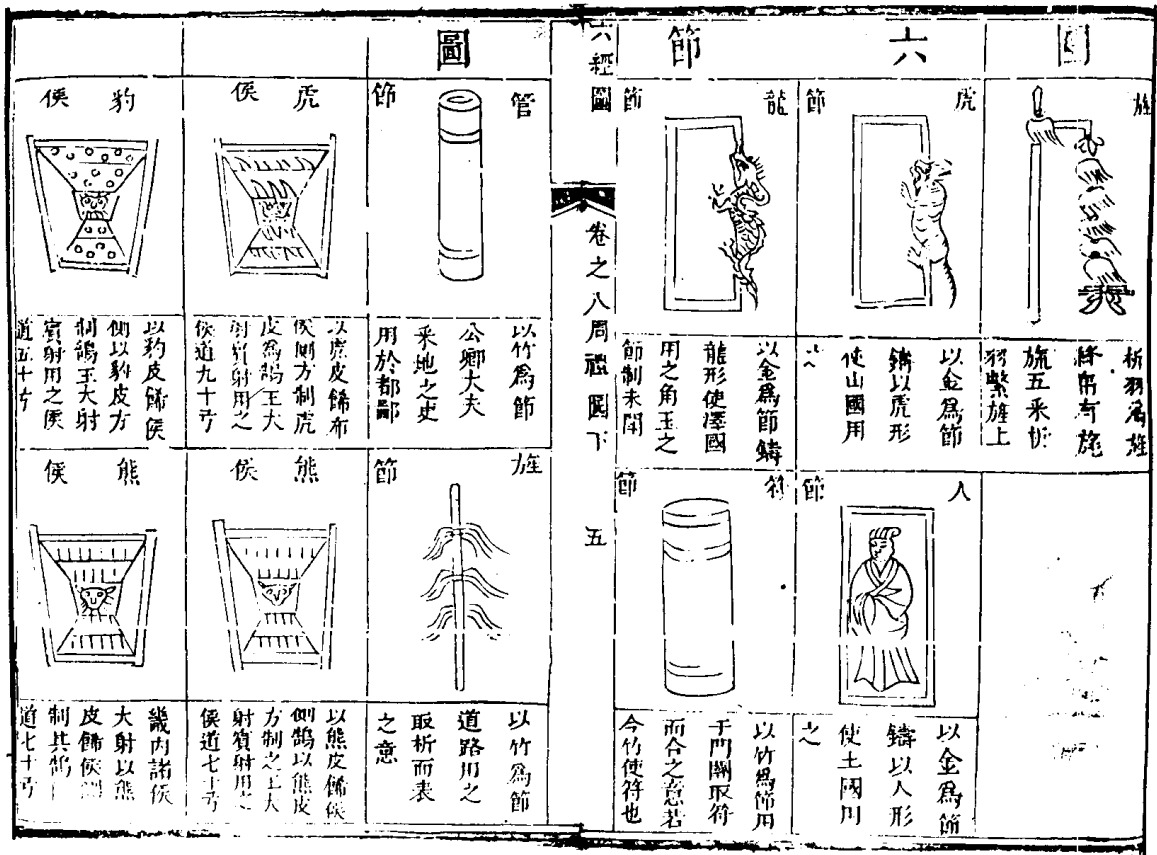 圖
旌
析羽為旌
絳帛有旒
旒五采析
羽繫旌上
六節
虎節
以金為節
鑄以虎形
使山國用
之
人節
以金為節
鑄以人形
使土國用
之
龍節
以金為節鑄
龍形使澤國
用之角玉之
節制未聞
符節
以竹為節用
于門關取符
而合之意若
今竹使符也
六經圖
卷之八周禮圖下
五
圖
管節
以竹為節
公卿大夫
采地之吏
用於都鄙
旌節
以竹為節
道路用之
取析而表
之意
虎侯
以虎皮飾布
侯側方制虎
皮為鵠王大
射賓射用之
侯道九十弓
熊侯
以熊皮飾侯
側鵠以熊皮
方制之王大
射賓射用之
侯道七十弓
豹侯
以豹皮飾侯
側以豹皮方
制鵠王大射
賓射用之侯
道五十弓
熊侯
畿內諸侯
大射以熊
皮飾侯側
制其鵠
道七十弓